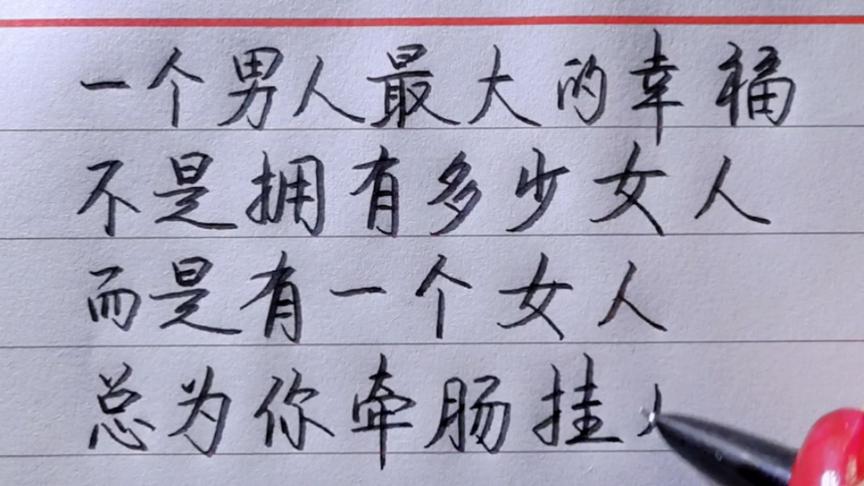 一个男人最大的幸福
不是拥有多少女人
而是有一个女人
总为你牵肠挂